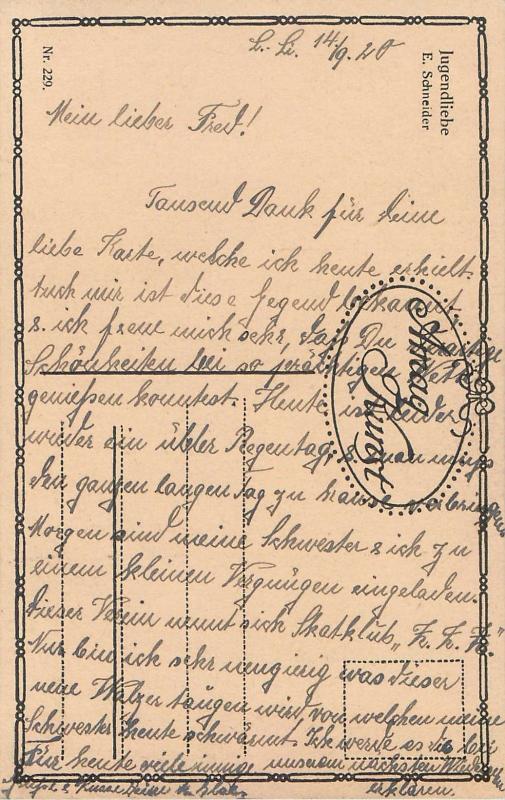 L. Li. 14/9. 20
Jugendliebe
E. Schneider
Nr. 229.
Mein lieber Fred!
Tausend Dank für deine
liebe Karte, welche ich heute erhielt.
Auch mir ist diese Gegend bekannt
& ich freue mich sehr, das Du
Schönheiten bei so prächtigen
genießen konntest. Heute ist leider
wieder ein übler Regentag, & man muss
den ganzen langen Tag zu hause verbringen
Morgen sind meine Schwester & ich zu
einem kleinen Vergnügen eingeladen.
Dieser Verein nennt sich Skatklub „Z. Z. K."
Nur bin ich sehr neugierig was dieser
neue Walzer taugen wird von welchen meine
Schwester heute schwärmt. Ich werde es dir bei
unserm nächsten
erklären.
Für heute viele innige
Grüsse & Küsse deine
Amag
Kunst